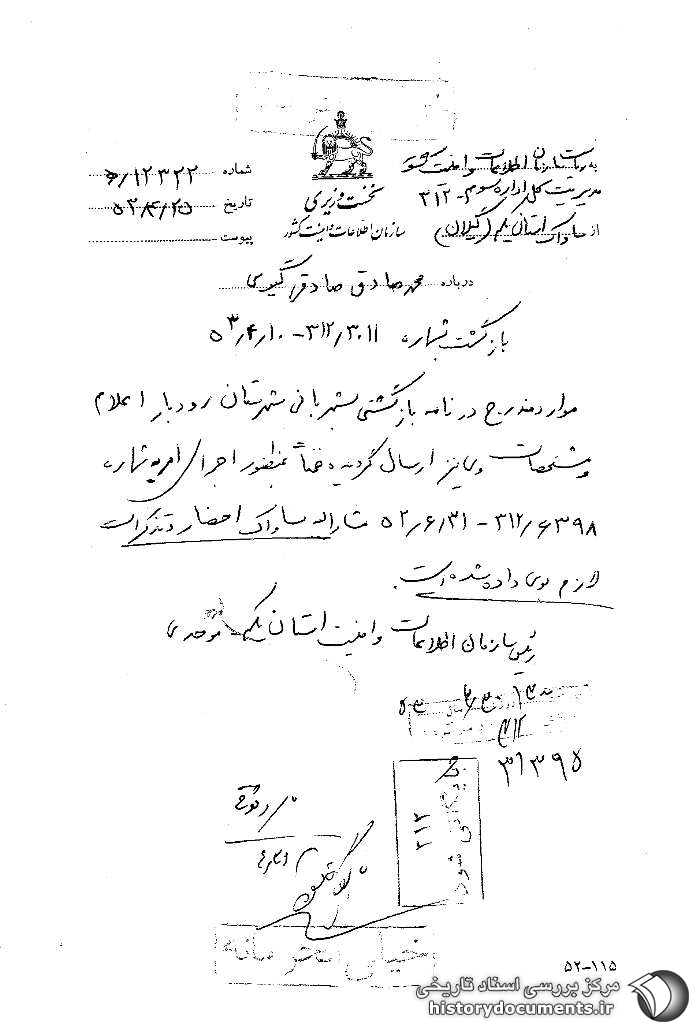 به ریاست سازمان اطلاعات و امنیت کشور
مدیریت کل اداره سوم - ۳۱۲
از ساواک استان یکم (گیلان)
نخست وزیری
سازمان اطلاعات و امنیت کشور
شماره ۵/۱۲۳۲۲
تاریخ
پیوست
درباره محمد صادق صادقی گیوی
بازگشت بشماره ۳۱۲/۳۰۱۱ - ۵۳/۴/۱۰
موارد مندرج در نامه بازگشتی بشهربانی شهرستان رودبار اعلام
و مشخصات وی نیز ارسال گردیده ضمناً بمنظور اجرای امریه شماره
۳۱۲/۶۳۹۸ - ۵۲/۶/۳۱ مشارالیه بساواک احضار و تذکرات
لازم بوی داده شده است.
رئیس سازمان اطلاعات و امنیت استان یکم موحدی
۳۱۲
۳۱۳۹۵
بایگانی شود
۳۱۲
خیلی محرمانه
۵۲-۱۱۵
مرکز بررسی اسناد تاریخی
historydocuments.ir